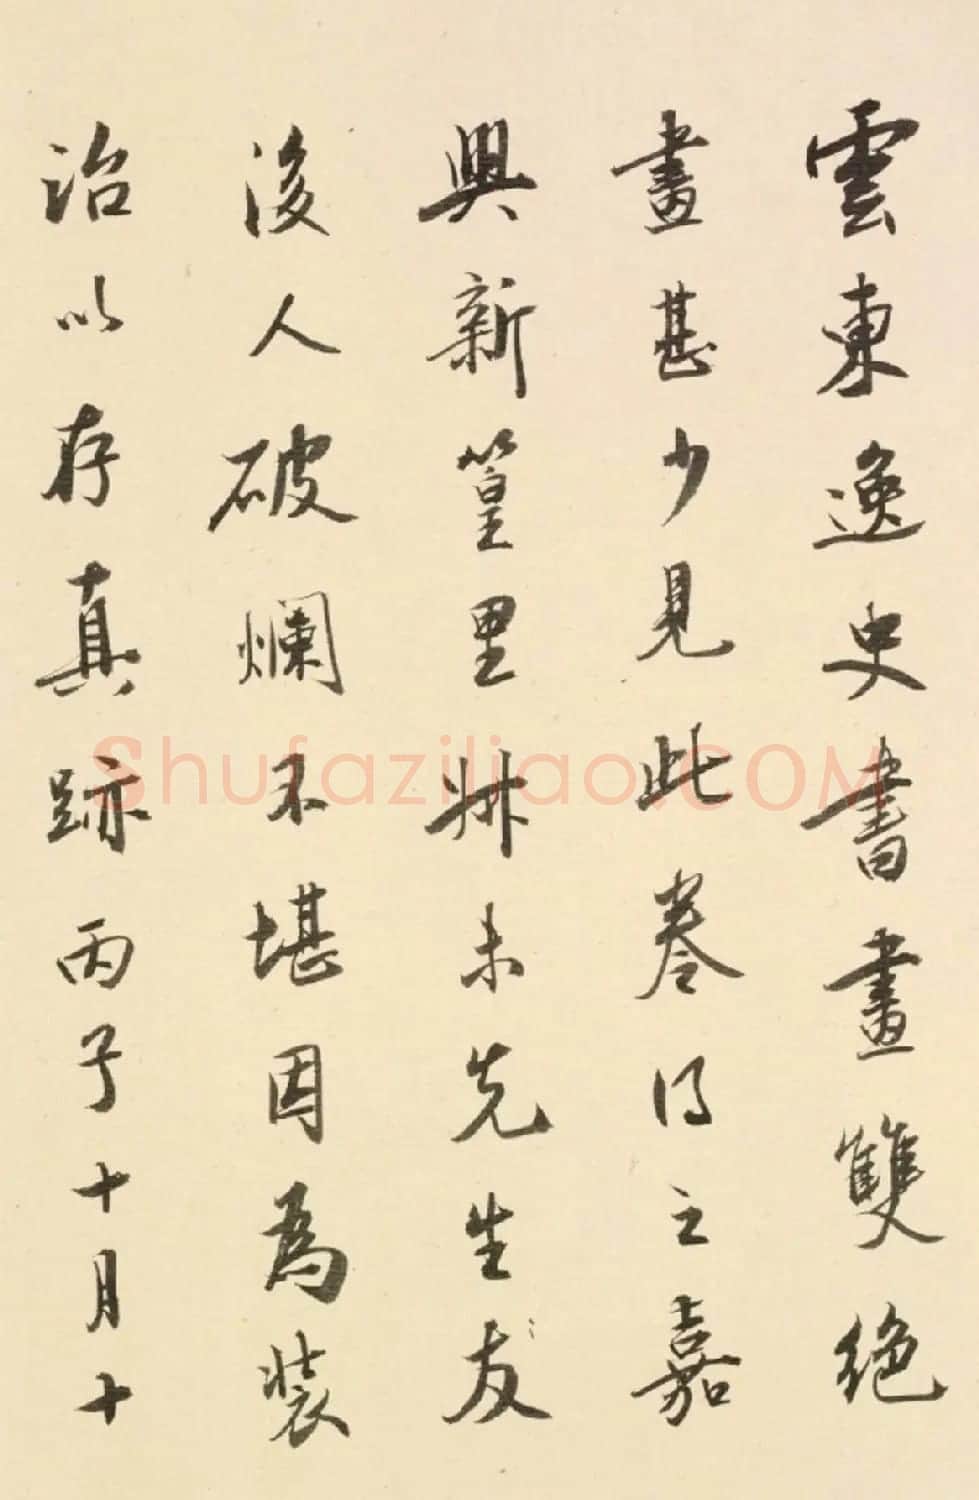 雲東逸史書畫雙絕
畫甚少見此卷得之嘉
興新篁里叔未先生友
後人破爛不堪因為裝
治以存真跡丙子十月十
Shufaziliao.COM